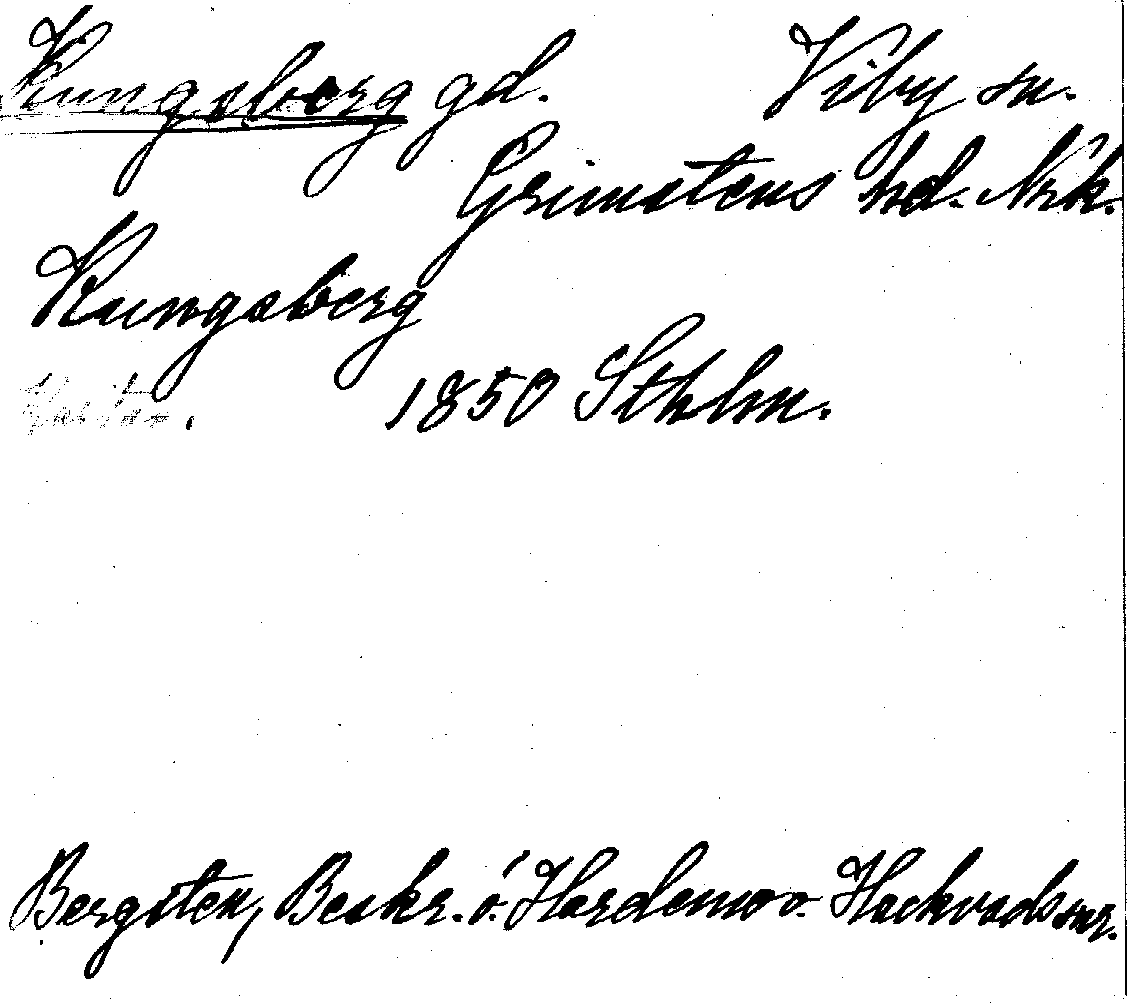 Kungsberg gd. Viby sn.
Grimstens hd. Nrk.
Kungsberg
1850 Sthlm.
Bergsten, Beskr. ö. Hardemo o. Hackvads snr.